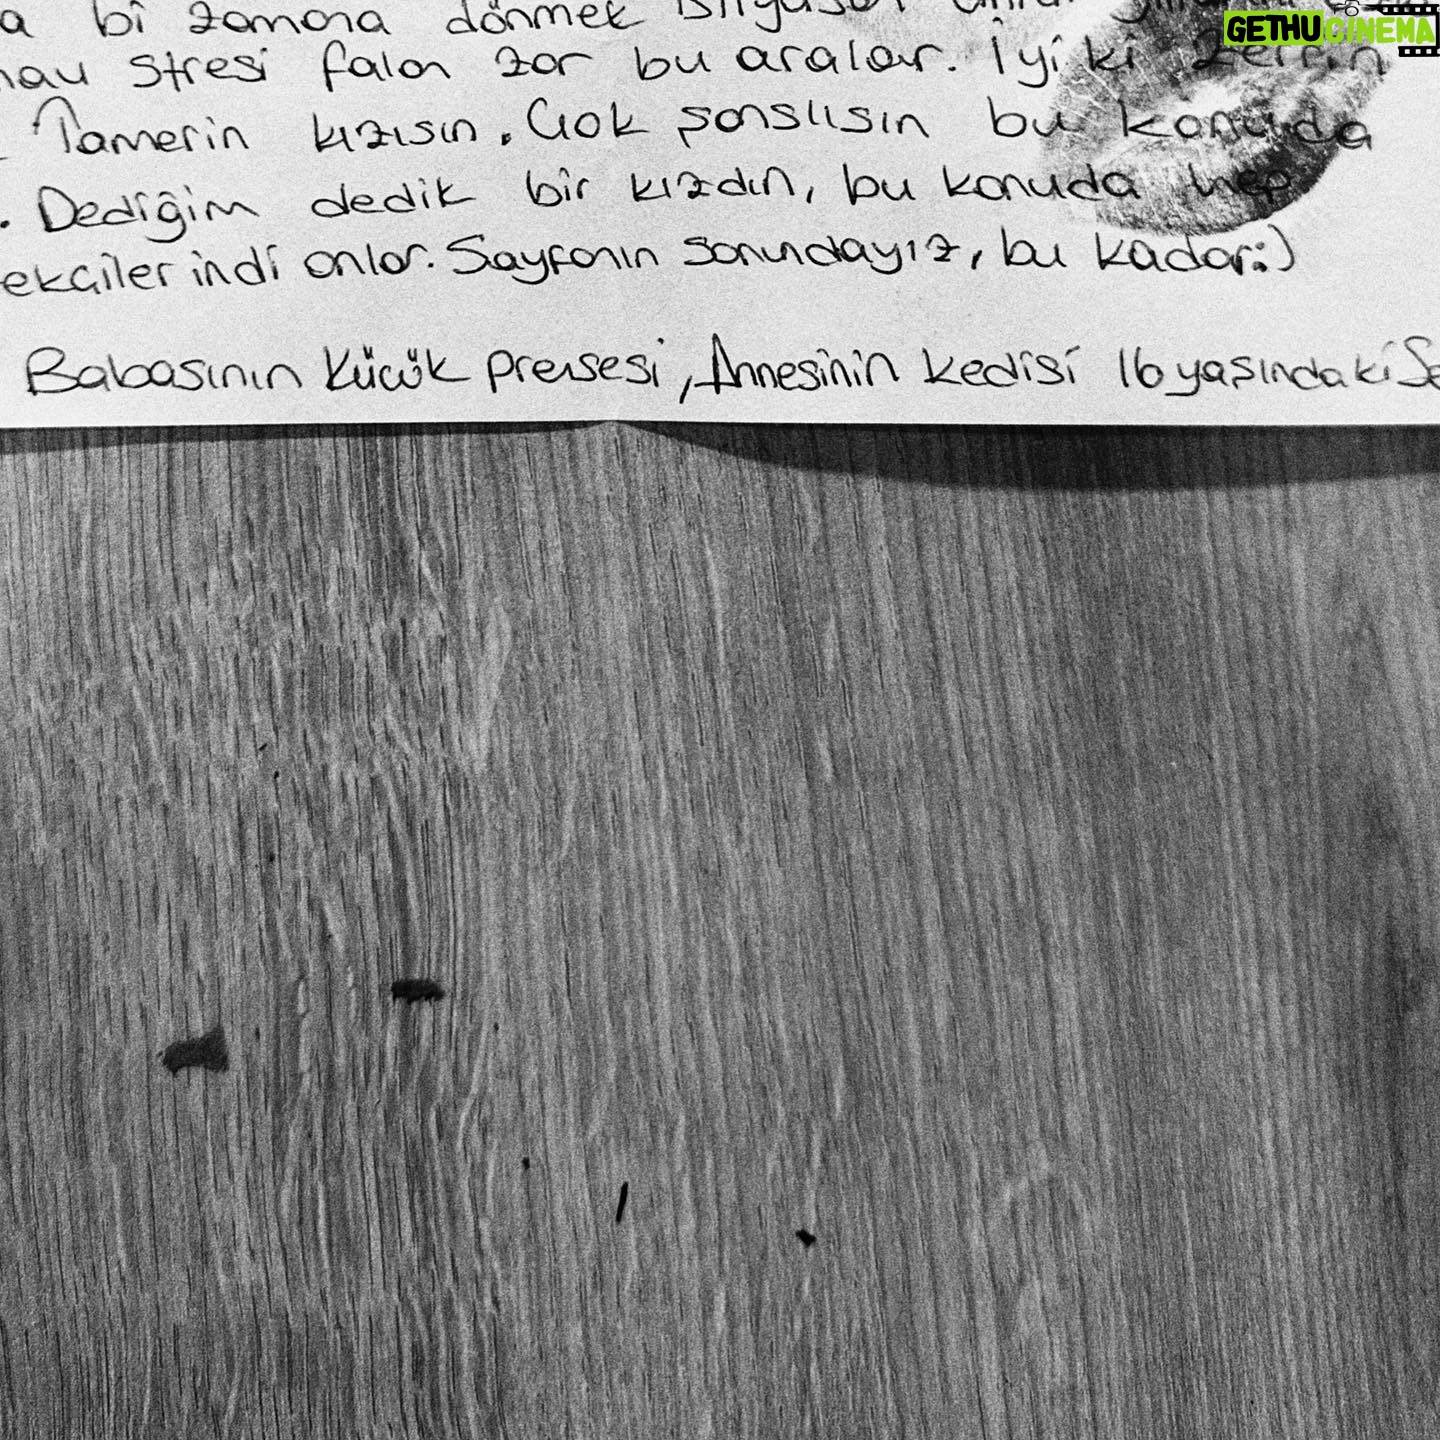 a bi zamana dönmek
stresi falan zor bu aralar. İyi ki Zerrin
Tamerin kızısın. Çok şanslısın bu konuda
. Dediğim dedik bir kızdın, bu konuda hep
ekçilerindi onlar. Sayfanın sonundayız, bu kadar:)
Babasının Küçük Prensesi, Annesinin kedisi 16 yaşındaki Se
GETHUCINEMA